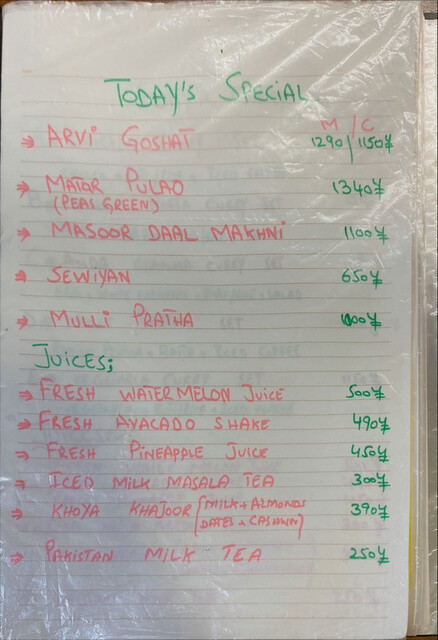 TODAY'S SPECIAL
M / C
⇒ ARVI GOSHAT 1290 / 1150¥
⇒ MATOR PULAO 1340¥
(PEAS GREEN)
⇒ MASOOR DAAL MAKHNI 1100¥
⇒ SEWIYAN 650¥
⇒ MULLI PRATHA
JUICES;
⇒ FRESH WATERMELON JUICE 500¥
⇒ FRESH AVACADO SHAKE 490¥
⇒ FRESH PINEAPPLE JUICE 450¥
⇒ ICED MILK MASALA TEA 300¥
⇒ KHOYA KHAJOOR [MILK + ALMONDS 390¥
DATES + CASHUW]
⇒ PAKISTAN MILK TEA 250¥